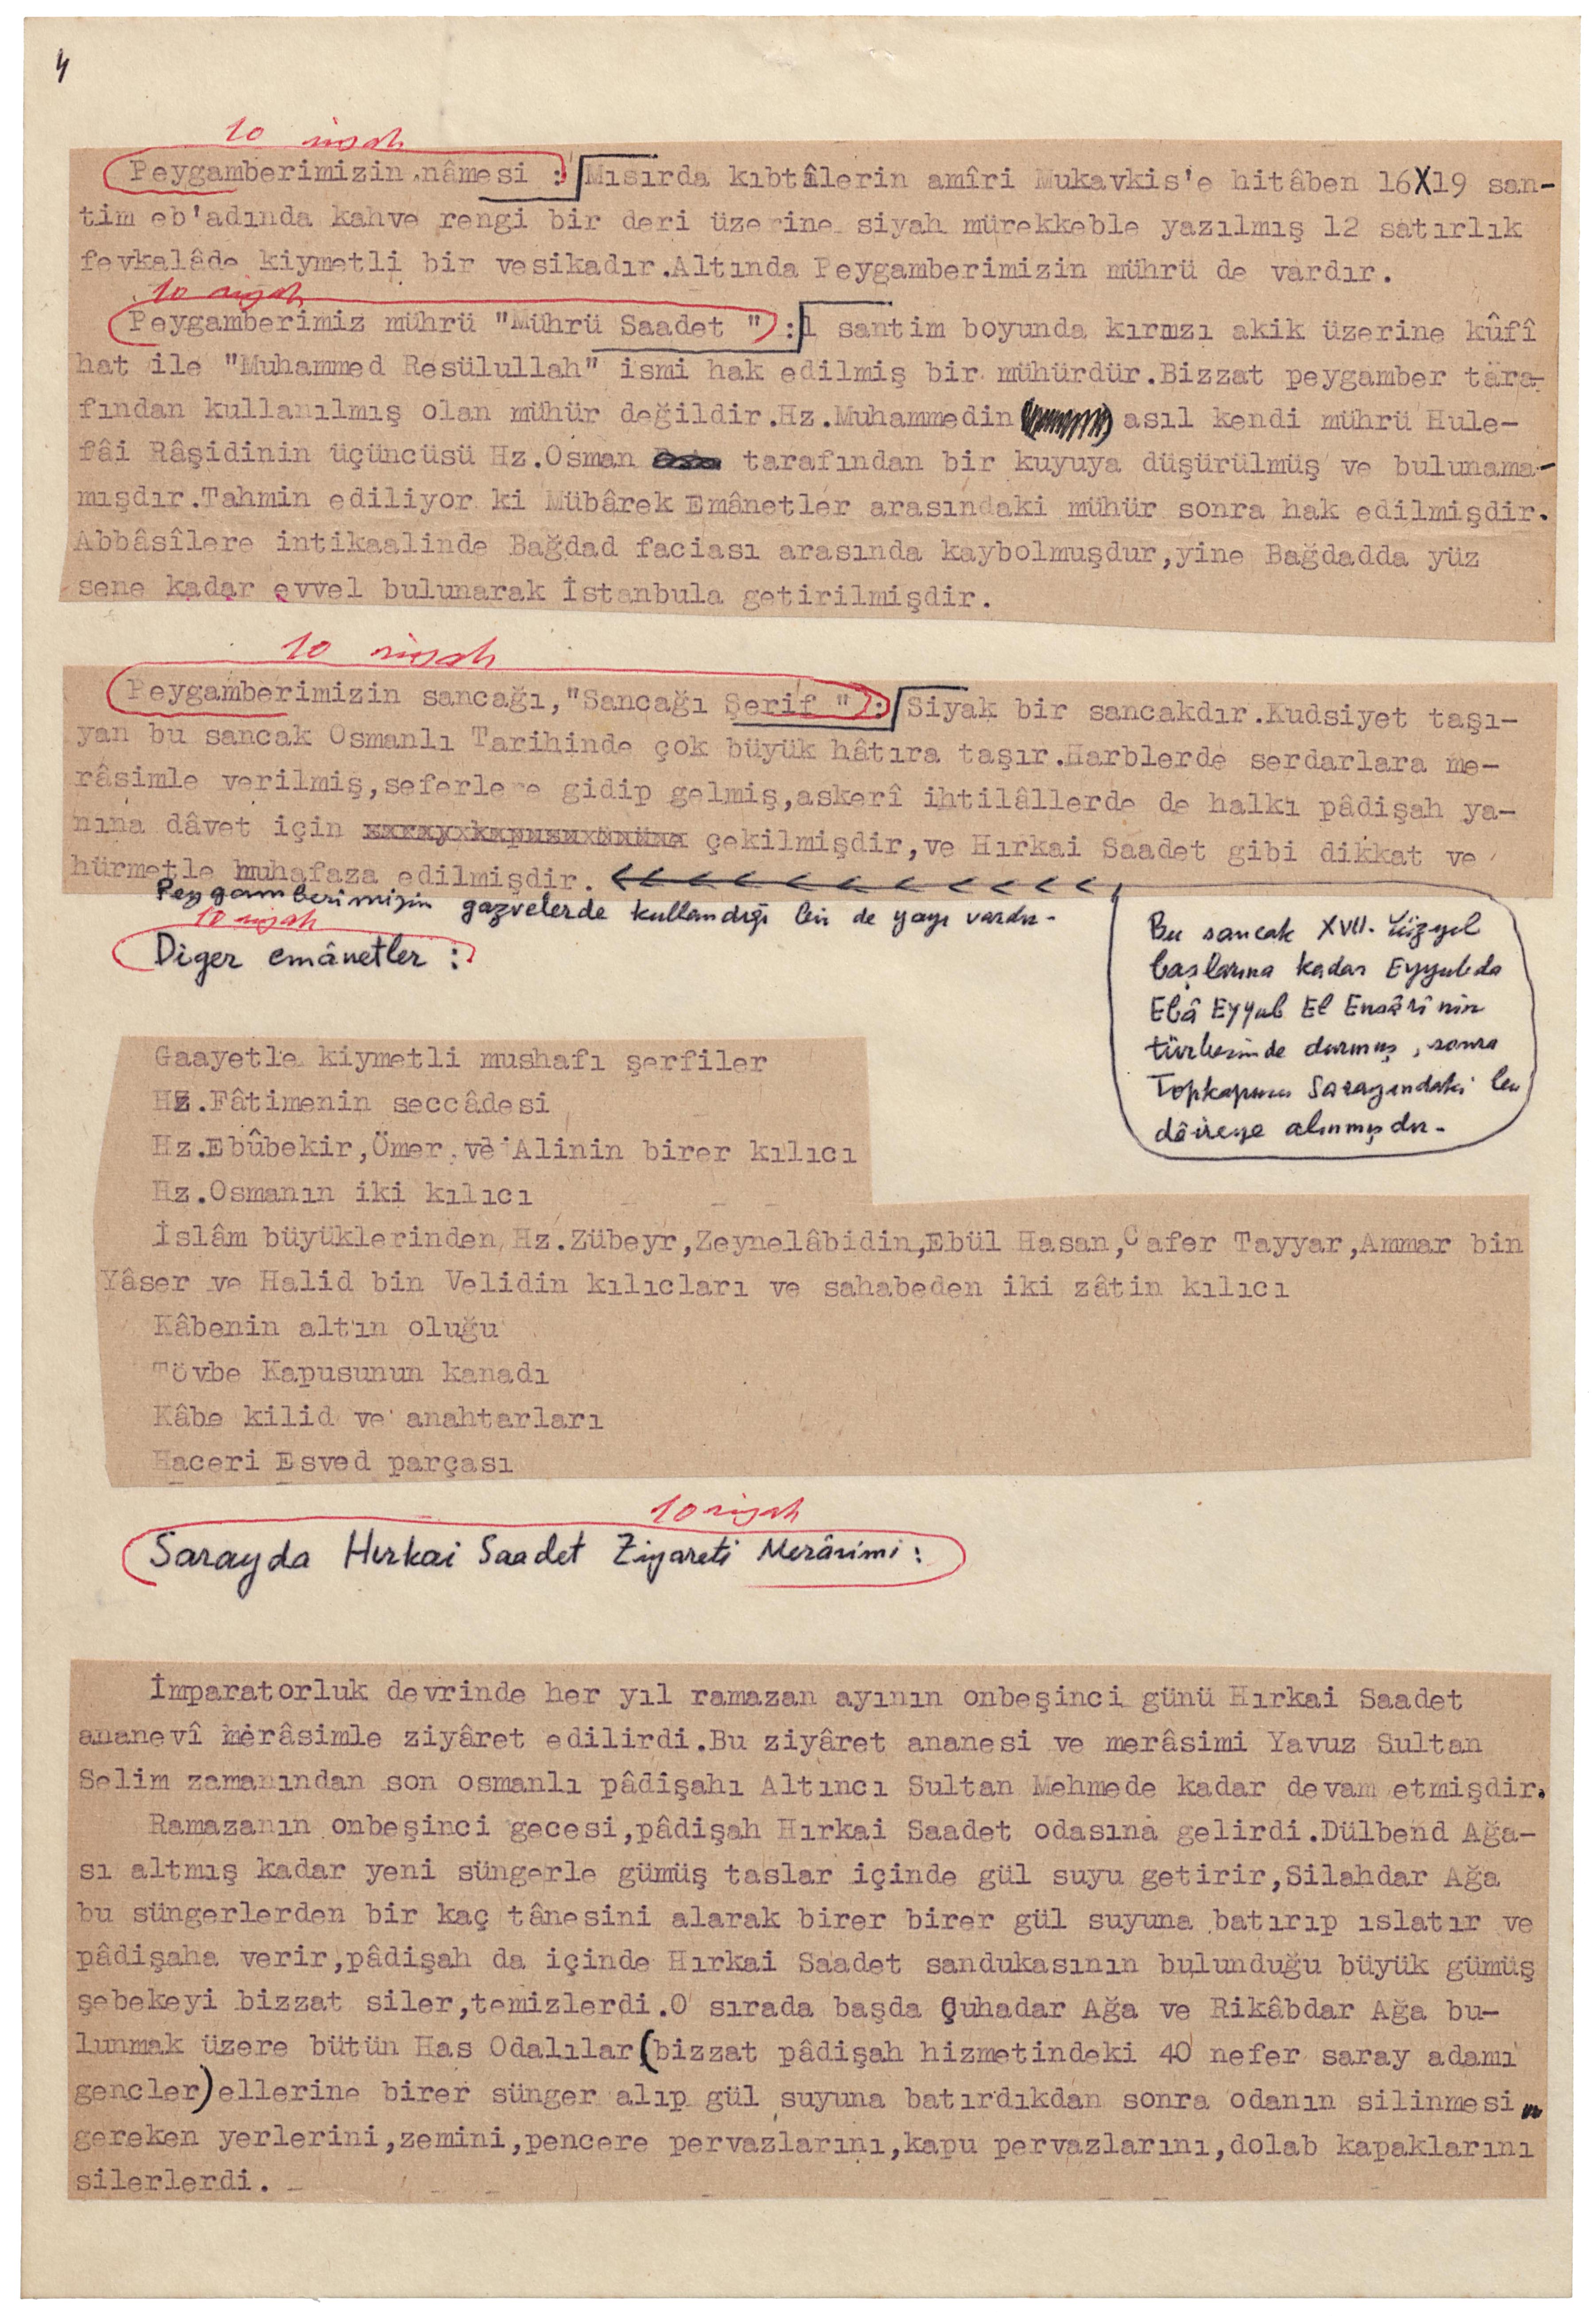 4
10 siyah
Peygamberimizin nâmesi : Mısırda kıbtîlerin amîri Mukavkis'e hitâben 16X19 san-
tim eb'adında kahve rengi bir deri üzerine siyah mürekkeble yazılmış 12 satırlık
fevkalâde kiymetli bir vesikadır.Altında Peygamberimizin mührü de vardır.
10 siyah
Peygamberimiz mührü "Mührü Saadet ") :1 santim boyunda kırmızı akik üzerine kûfî
hat ile "Muhammed Resülullah" ismi hak edilmiş bir mühürdür.Bizzat peygamber tara-
fından kullanılmış olan mühür değildir.Hz.Muhammedin asıl kendi mührü Hule-
fâi Râşidinin üçüncüsü Hz.Osman tarafından bir kuyuya düşürülmüş ve bulunama-
mışdır.Tahmin ediliyor ki Mübârek Emânetler arasındaki mühür sonra hak edilmişdir.
Abbâsîlere intikaalinde Bağdad faciası arasında kaybolmuşdur,yine Bağdadda yüz
sene kadar evvel bulunarak İstanbula getirilmişdir.
10 siyah
Peygamberimizin sancağı,"Sancağı Şerif ") : Siyak bir sancakdır.Kudsiyet taşı-
yan bu sancak Osmanlı Tarihinde çok büyük hâtıra taşır.Harblerde serdarlara me-
râsimle verilmiş,seferlere gidip gelmiş,askerî ihtilâllerde de halkı pâdişah ya-
nına dâvet için çekilmişdir,ve Hırkai Saadet gibi dikkat ve
hürmetle muhafaza edilmişdir.
Peygamberimizin gazvelerde kullandığı bir de yayı vardır-
Bu sancak XVII. Yüzyıl
başlarına kadar Eyyubda
Ebâ Eyyub El Ensârî nin
türbesinde durmuş, sonra
Topkapusu Sarayındaki bu
dâireye alınmışdır-
10 siyah
Diger emânetler :
Gaayetle kiymetli mushafı şerfiler
Hz.Fâtimenin seccâdesi
Hz.Ebûbekir,Ömer ve Alinin birer kılıcı
Hz.Osmanın iki kılıcı
İslâm büyüklerinden Hz.Zübeyr,Zeynelâbidin,Ebül Hasan,Cafer Tayyar,Ammar bin
Yâser ve Halid bin Velidin kılıcları ve sahabeden iki zâtin kılıcı
Kâbenin altın oluğu
Tövbe Kapusunun kanadı
Kâbe kilid ve anahtarları
Haceri Esved parçası
10 siyah
Sarayda Hırkai Saadet Ziyareti Merâsimi :
İmparatorluk devrinde her yıl ramazan ayının onbeşinci günü Hırkai Saadet
ananevî merâsimle ziyâret edilirdi.Bu ziyâret ananesi ve merâsimi Yavuz Sultan
Selim zamanından son osmanlı pâdişahı Altıncı Sultan Mehmede kadar devam etmişdir.
Ramazanın onbeşinci gecesi,pâdişah Hırkai Saadet odasına gelirdi.Dülbend Ağa-
sı altmış kadar yeni süngerle gümüş taslar içinde gül suyu getirir,Silahdar Ağa
bu süngerlerden bir kaç tânesini alarak birer birer gül suyuna batırıp ıslatır ve
pâdişaha verir,pâdişah da içinde Hırkai Saadet sandukasının bulunduğu büyük gümüş
şebekeyi bizzat siler,temizlerdi.O sırada başda Çuhadar Ağa ve Rikâbdar Ağa bu-
lunmak üzere bütün Has Odalılar(bizzat pâdişah hizmetindeki 40 nefer saray adamı
gencler)ellerine birer sünger alıp gül suyuna batırdıkdan sonra odanın silinmesi
gereken yerlerini,zemini,pencere pervazlarını,kapu pervazlarını,dolab kapaklarını
silerlerdi.